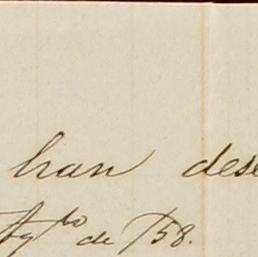 han dese
Agto de 758.